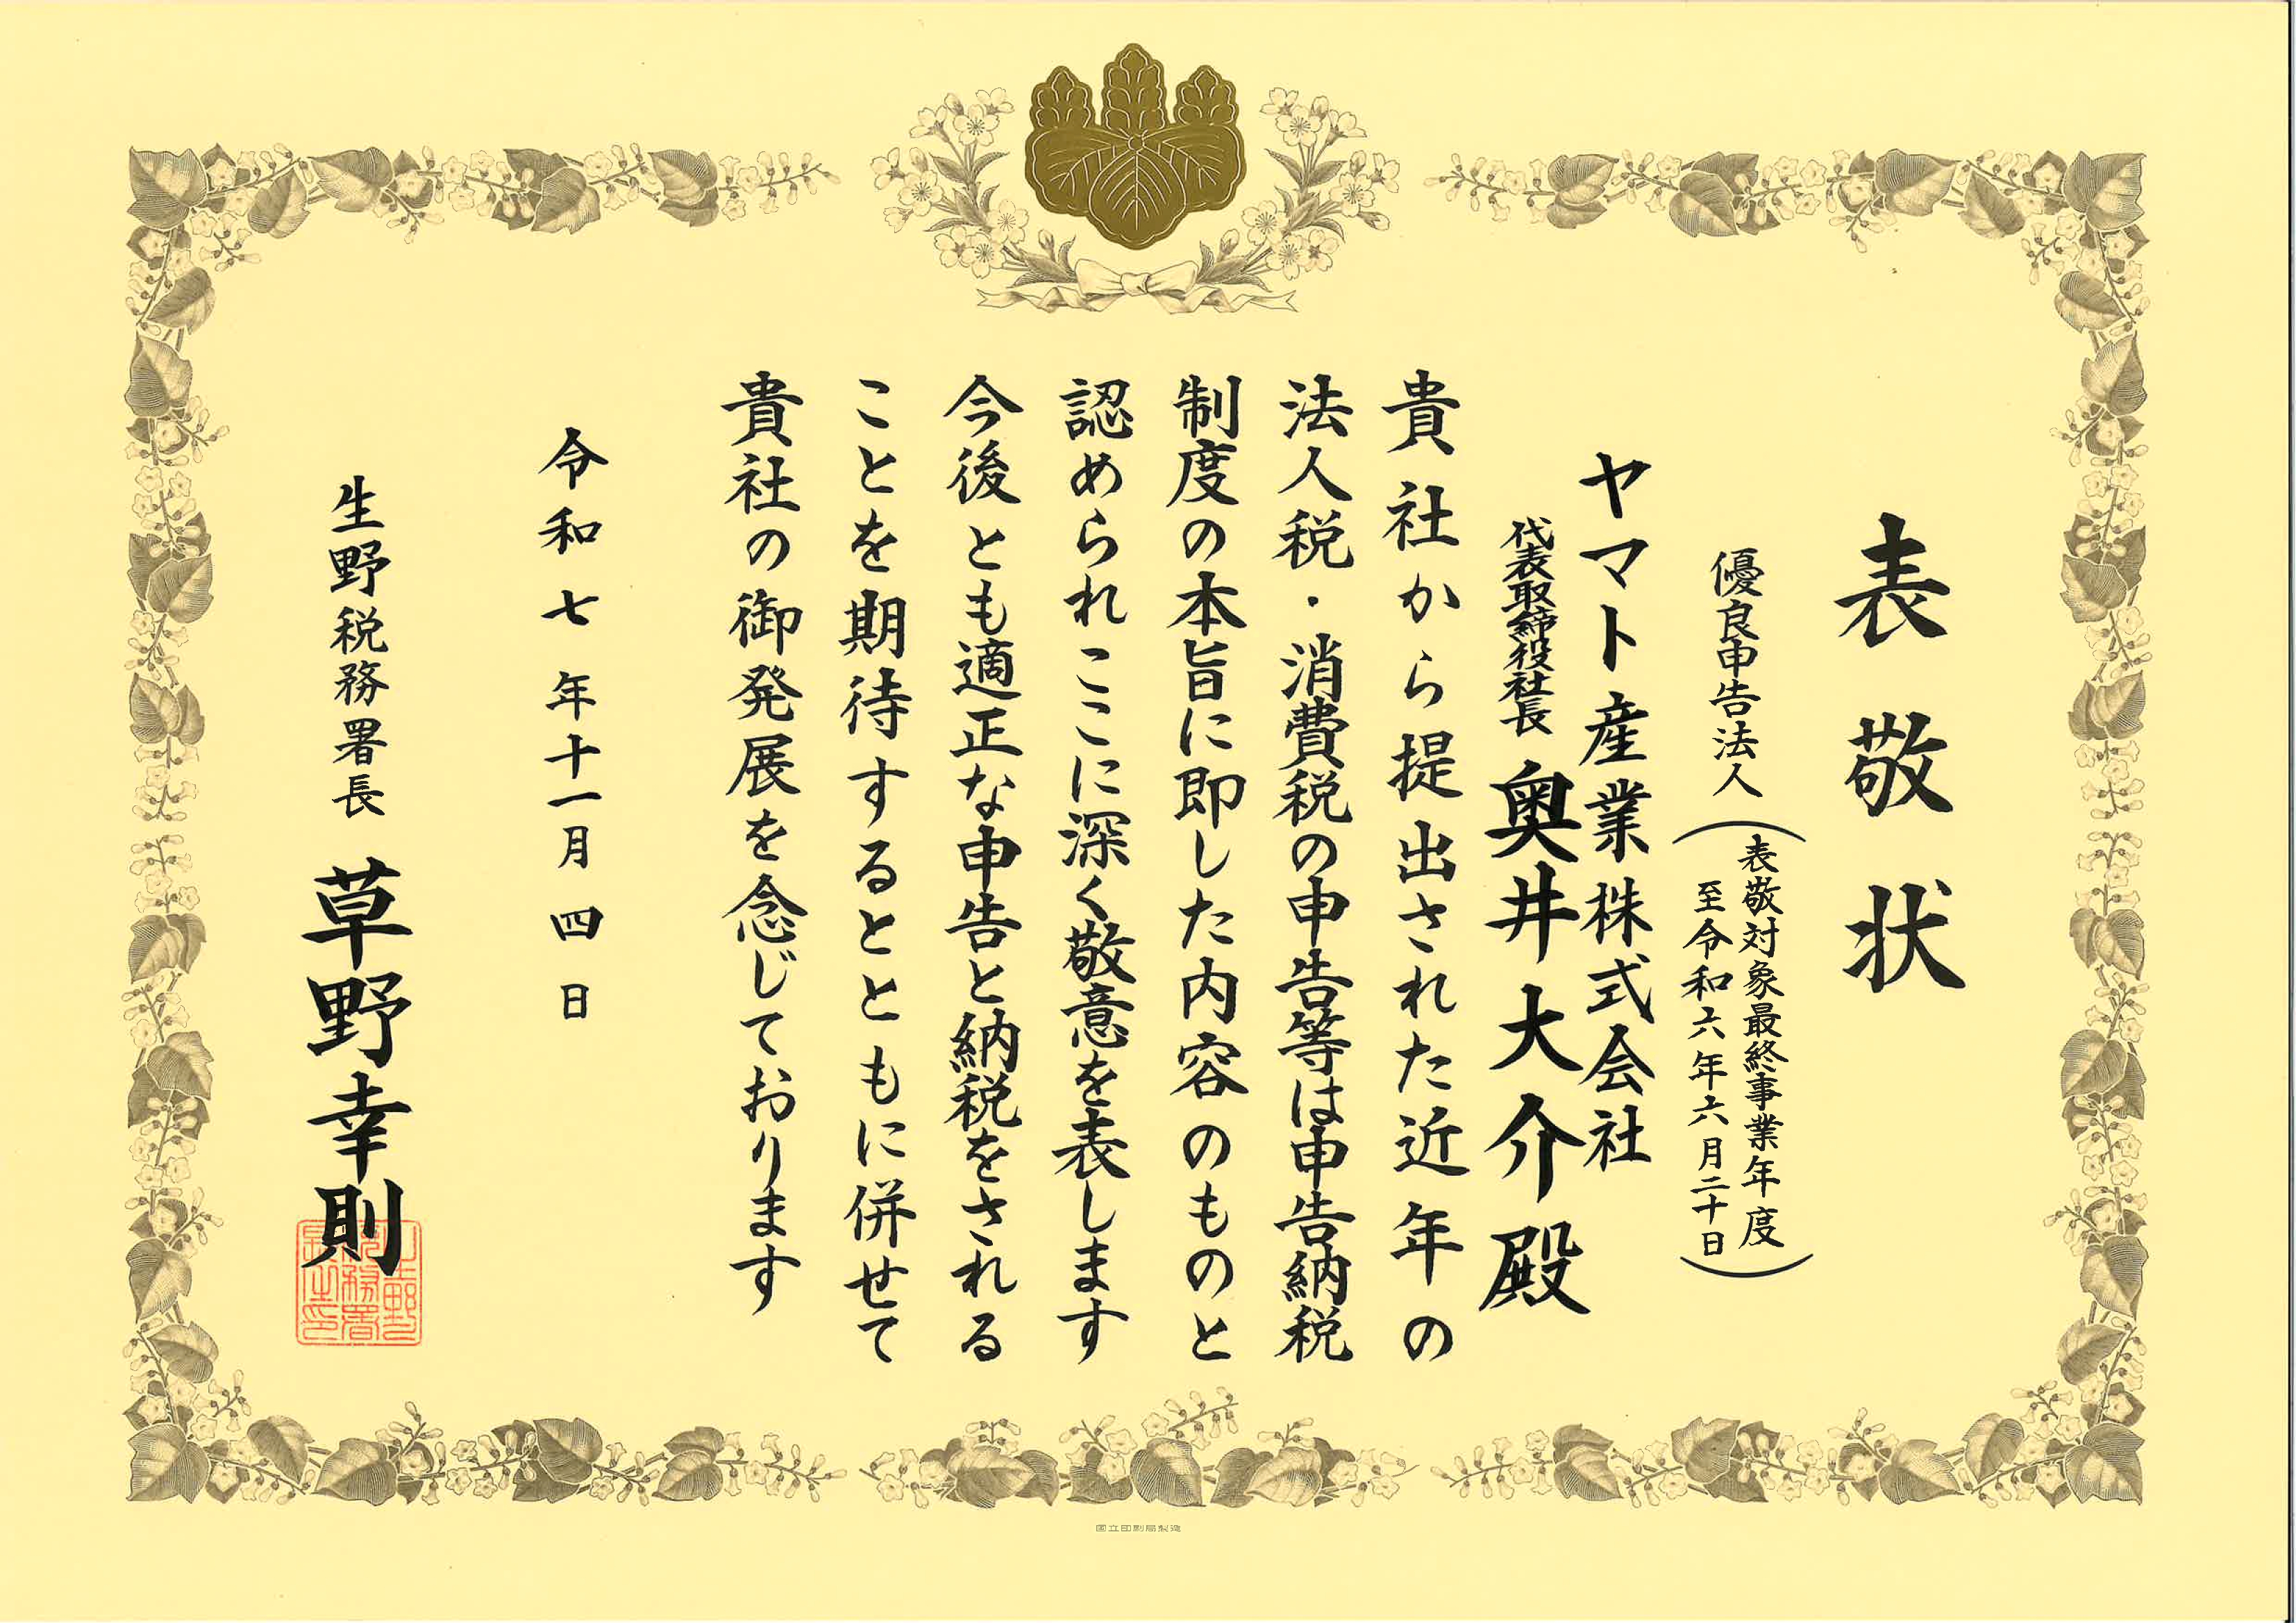 表敬状
優良申告法人
（表敬対象最終事業年度
至令和六年六月二十日）
ヤマト産業株式会社
代表取締役社長 奥井大介殿
貴社から提出された近年の
法人税・消費税の申告等は申告納税
制度の本旨に即した内容のものと
認められここに深く敬意を表します
今後とも適正な申告と納税をされる
ことを期待するとともに併せて
貴社の御発展を念じております
令和七年十一月四日
生野税務署長 草野幸則
生野
税務署
長之印
国立印刷局製造